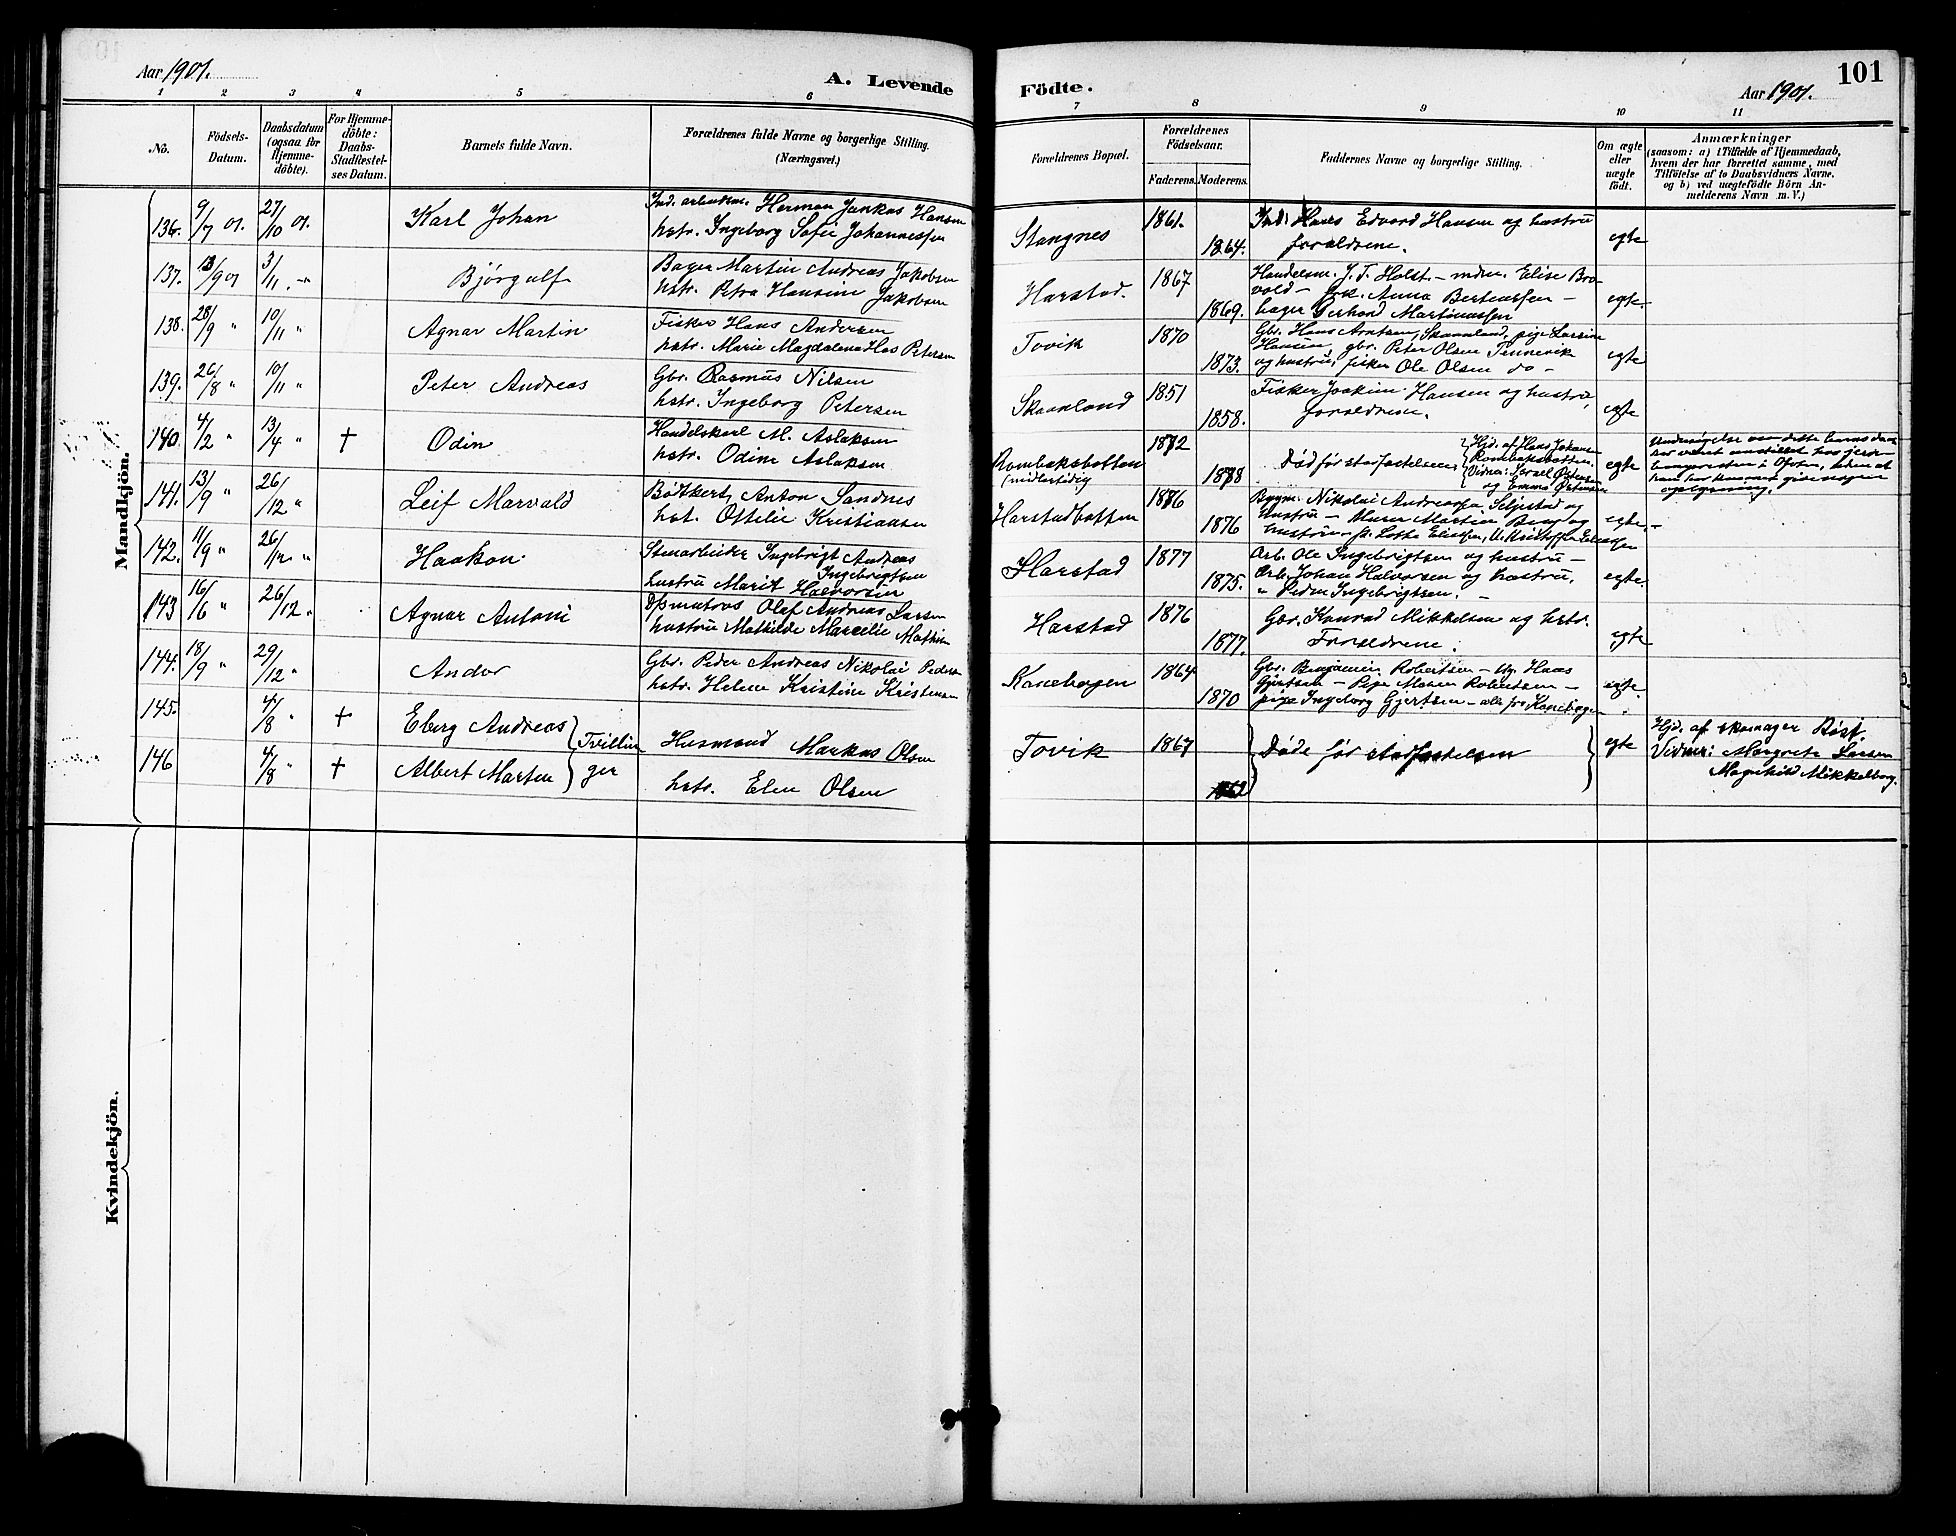 Aar 1901.
A. Levende
Födte.
Aar 1901.
101
1 2 3 4 5 6 7 8 9 10 11
No.
Födsels-
Datum.
Daabsdatum
(ogsaa for
Hjemme-
döbte).
For Hjemme-
döbte:
Daabs-
Stadfæstel-
ses Datum.
Barnets fulde Navn.
Forældrenes fulde Navne og borgerlige Stilling.
(Næringsvei.)
Forældrenes Bopæl.
Forældrenes
Födselsaar.
Faderens. Moderens.
Faddernes Navne og borgerlige Stilling.
Om ægte
eller
uægte
födt.
Anmærkninger
(saasom: a) i Tilfælde af Hjemmedaab,
hvem der har forrettet samme, med
Tilföielse af to Daabsvidners Navne,
og b) ved uægtefödte Börn An-
melderens Navn m. V.)
Mandkjön.
136. 9/7 01. 27/10 01. Karl Johan
Ind. arbeidsm. Herman Hansen
hstr. Ingeborg Sofie Johannessen
Stangnes 1861. 1864.
Ind. Hans Edvard Hansen og hustru
forældrene.
egte
137. 13/9 01 3/11 . -"- Bjørgulf
Bager Martin Andreas Jakobsen
hstr. Petra Hansine Jakobsen
Harstad. 1867 1869.
Handelsm. J. T. Holst - mdm. Elise Bro-
vold - frk. Anna Berteussen -
bager Gerhard Martinussen
egte.
138. 28/9 " 10/11 " Agnar Martin
Fisker Hans Andersen
hstr. Marie Magdalena Petersen
Tovik 1870 1873.
Gbr. Hans Arntsen, Skaanland, pige Lassine
Hansen, gbr. Peter Olsen Tennevik
og hustru, fisker Ole Olsen do -
egte
139. 26/8 " 10/11 " Peter Andreas
Gbr. Rasmus Nilsen
hstr. Ingeborg Petersen
Skaanland 1851 1858.
Fisker Joakim Hansen og hustru,
forældrene.
egte
140. 4/2 " 13/4 " † Odin
Handelskarl M. Aslaksen
hstr. Odine Aslaksen
Rombaksbotten
(midlertidig
1872 1878
Død før stadfæstelsen
Hjd. af Hans Johansen
Rombaksbotten.
Vidner: Israel Østensen
og Emma Østensen
egte
Undersøgelse om dette barns daab
har været anstillet hos jern-
banepresten i Ofoten, uden at
han har kunnet give nogen
oplysning.
141. 13/9 " 26/12 " Leif Marvald
Bødker Anton Sandnes
hst. Ottilie Kristiansen
Harstadbotten 1876 1876
Bygm. Nikolai Andreassen Seljestad og
hustru - Murer Martin Berg og
hustru - fr. Lotte Eliassen, U. Kristoffer Eriksen
egte -
142. 11/9 " 26/12 " Haakon
Stenarbeider Ingebrigt Andreas
Ingebrigtsen
hustru Marit Halvorsen
Harstad 1877 1875.
Arb. Ole Ingebrigtsen og hustru -
Arb. Johan Halvorsen og hustru,
" Peder Ingebrigtsen. -
egte.
143 16/6 " 26/12 " Agnar Antoni
Dpsmatros Olaf Andreas Larsen
hustru Mathilde Marcelie
Harstad 1876 1877.
Gbr. Konrad Mikkelsen og hstr.
Forældrene.
egte
144. 18/9 " 29/12 " Andor
Gbr. Peder Andreas Nikolai Pedersen
hstr. Helene Kristine Kristensen
Kanebogen 1864 1870
Gbr. Benjamin Robertsen - Ug. Haas
Gjertsen - Pige Maren Robertsen -
pige Ingeborg Gjertsen - alle fra Kanebogen
egte.
145. 4/8 " † Eberg Andreas
146 4/8 " † Albert Marten
Tvillin
ger
Husmand Markus Olsen
hstr. Elen Olsen
Tovik 1867
Døde før stadfæstelsen
egte
Hjd. af skomager Røst.
Vidner: Margrete Larsen
Magnhild Mikkelborg.
Kvindekjön.